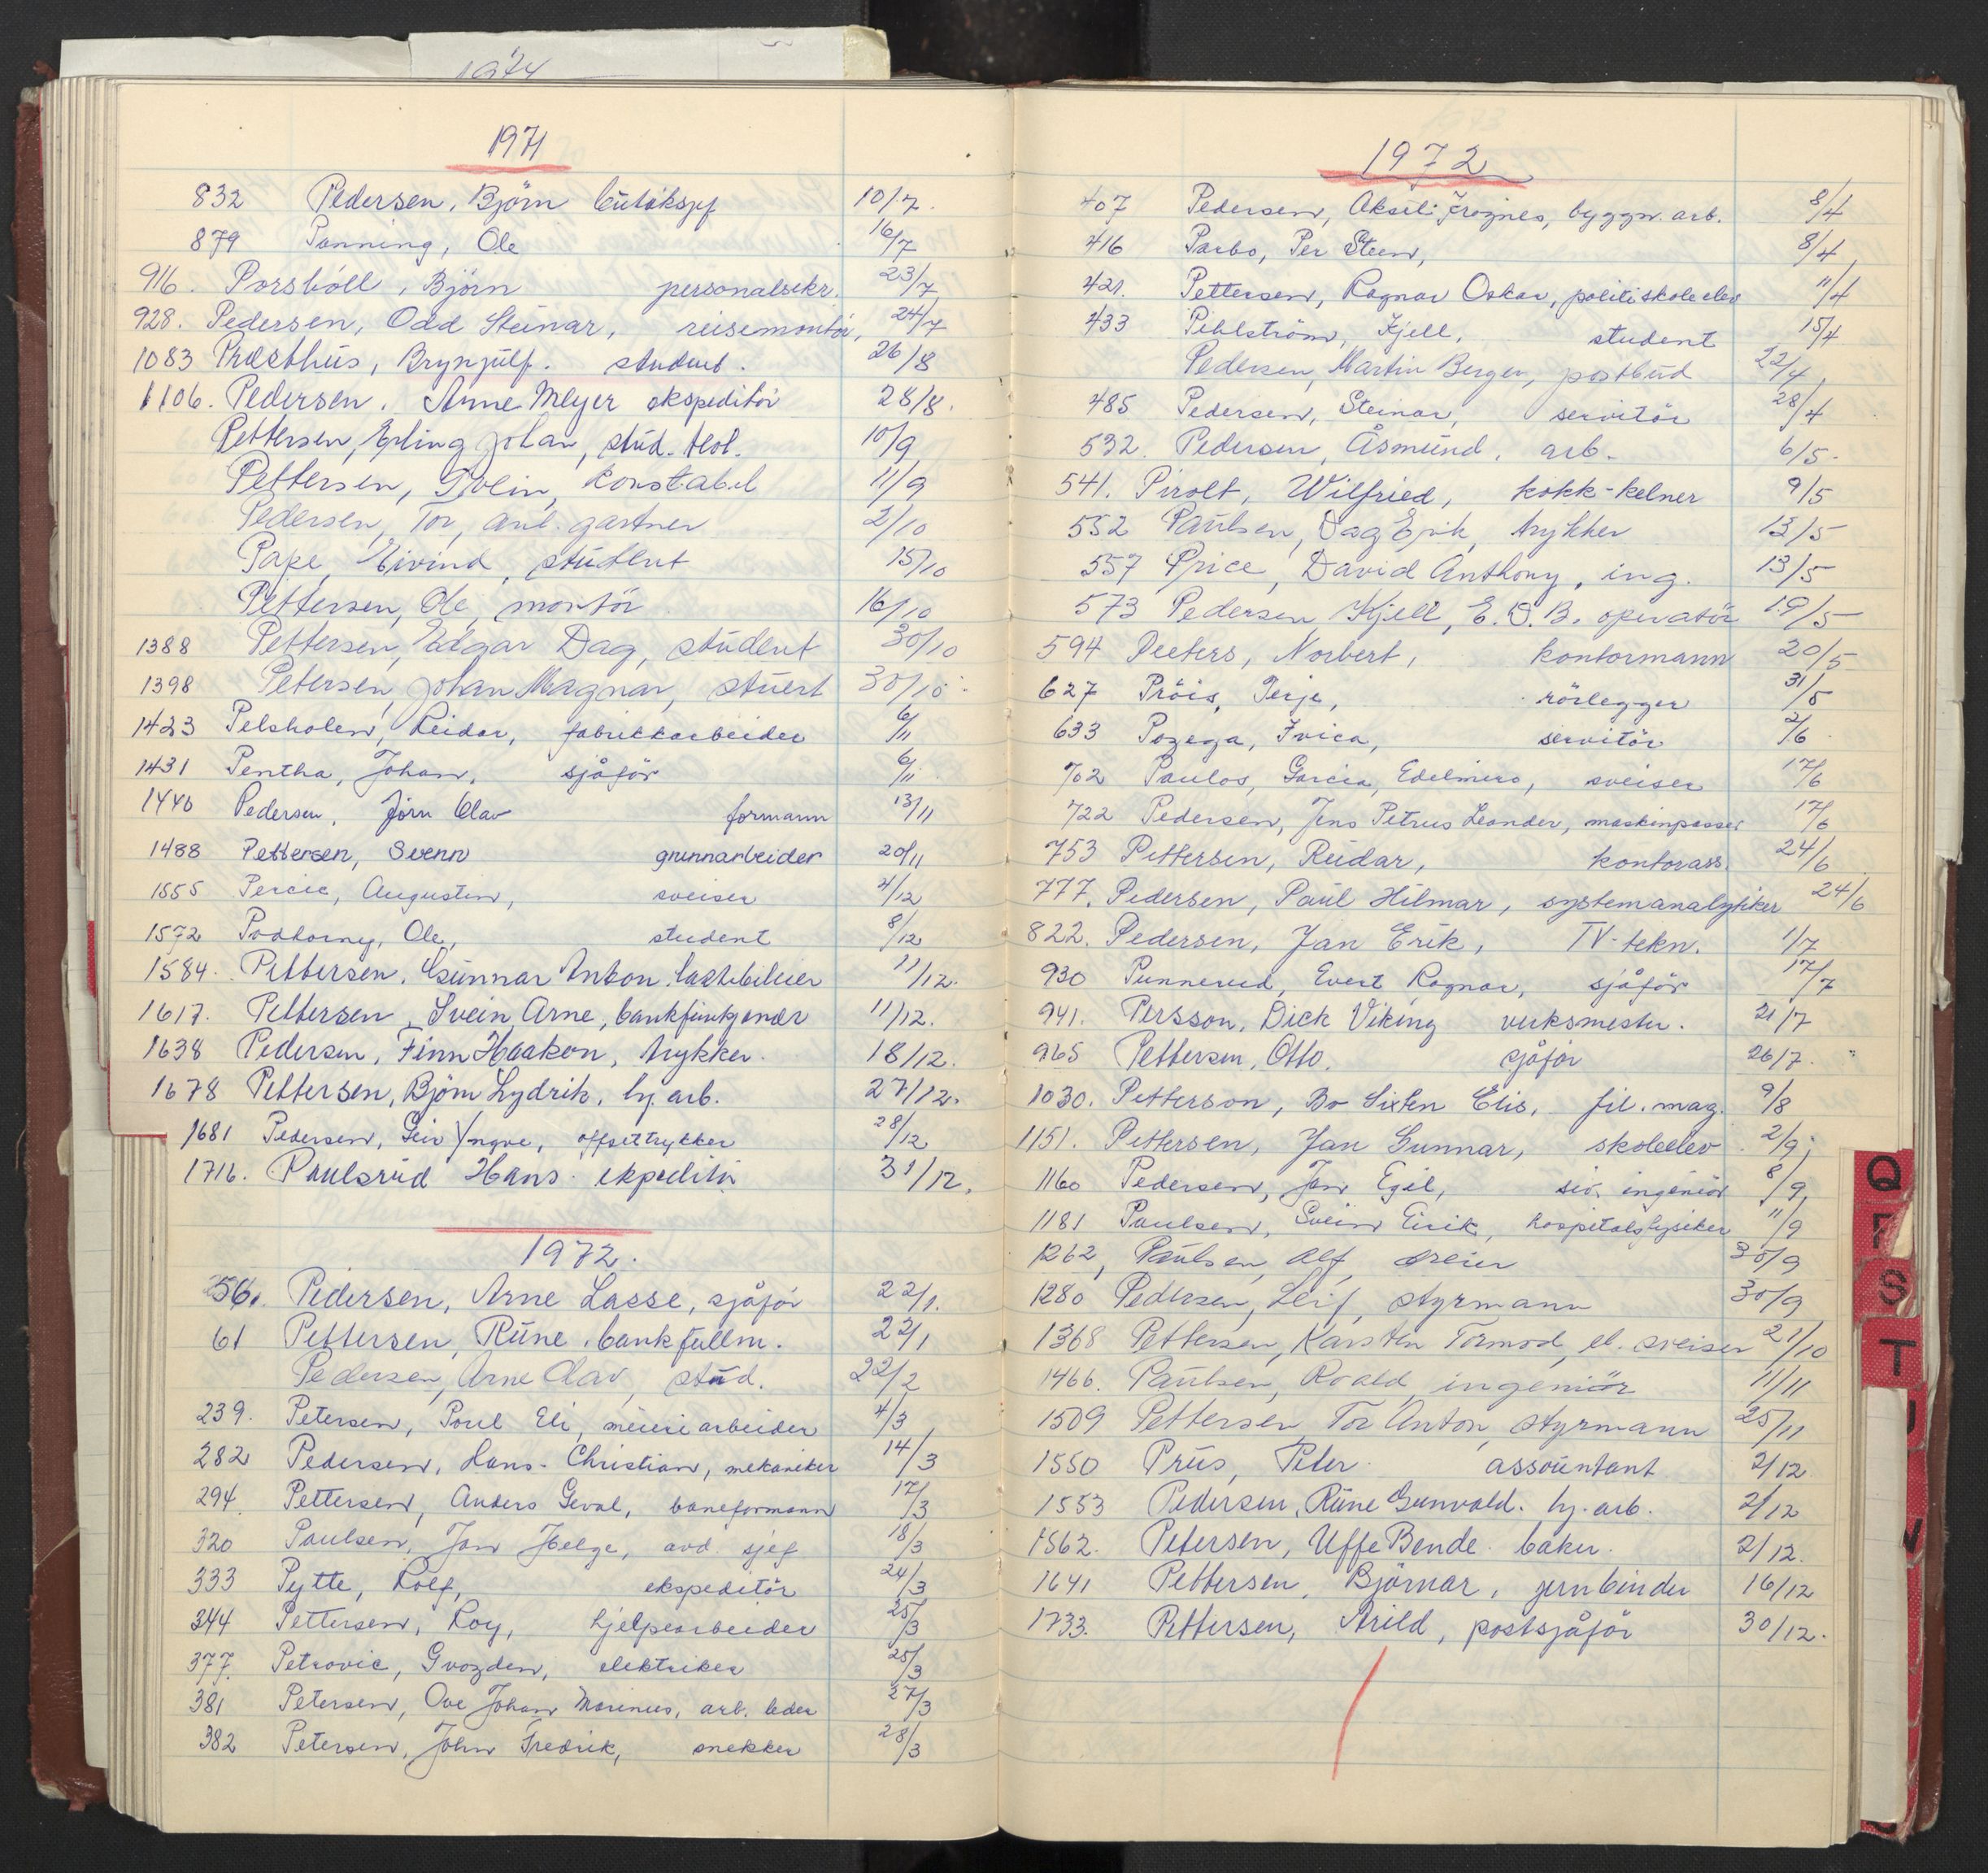 1974
1971
832 Pedersen, Björn 10/7.
879 Panning, Ole 16/7
916. Porsböll, Björn personalsekr. 23/7
928. Pedersen, Odd Steinar, reisemontör, 24/7
1083 Præsthus, Brynjulf. student. 26/8
1106. Pedersen. Arne Meyer ekspeditör 28/8.
Pettersen, Erling Johan, stud. teol. 10/9
Pettersen, konstabel 11/9
Pedersen, Tor, anl. gartner 2/10
Pape, Eivind, student 15/10
Pettersen, Ole, montör 16/10
1388 Pettersen, Edgar Dag, student 30/10
1398 Petersen, Johan Magnar, stuert 30/10.
1423 Pelsholen, Reidar, fabrikkarbeider 6/11
1431 Pentha, Johan, sjåför 6/11
1440 Pedersen, Jörn Olav formann 13/11
1488 Pettersen, Svenn grunnarbeider 20/11
1555 Percic, Augustin, sveiser 4/12
1572 Podhorny, Ole, student 8/12
1584. Pettersen. Gunnar Anton. lastebileier 11/12.
1617. Pettersen, Svein Arne, bankfunksjonær 11/12.
1638 Pedersen, Finn Haakon, trykker. 18/12.
1678 Pettersen, Björn Lydrik, hj. arb. 27/12.
1681 Pedersen, Geir Yngve, offsettrykker 28/12
1716. Paulsrud Hans. ekspeditör 31/12.
1972.
56. Pedersen, Arne Lasse, sjåför 22/1.
61 Pettersen, Rune, bankfullm. 22/1
Pedersen, Arne Olav, stud. 22/2
239. Petersen, Poul Eli, meieriarbeider 4/3
282 Pedersen, Hans-Christian, mekaniker 14/3
294. Pettersen, Anders Geval, baneformann 17/3
320 Paulsen, Jan Helge, avd. sjef 18/3
333 Pytte, Rolf, ekspeditör 24/3
344 Pettersen, Roy, hjelpearbeider 25/3
377. Petrovic, Gvozden, elektriker 25/3
381 Petersen, Ove Johan Marinus, arb. leder 27/3
382 Petersen, John Fredrik, snekker 28/3
1972
407 Pedersen, Aksel byggn. arb. 8/4
416 Parbo, Per Steen, 8/4
421. Pettersen, Ragnar Oskar, politiskoleelev 11/4
433 Pihlström, Kjell, student 15/4
Pedersen, Martin Berger, postbud 22/4
485 Pedersen, Steinar, servitör 28/4
532. Pedersen, Åsmund. arb. 6/5.
541. Pirolt, Wilfried, kokk-kelner 9/5
552 Paulsen, Dag Erik, trykker 13/5
557 Price, David Anthony, ing. 13/5
573 Pedersen Kjell, E.D.B. operatör 19/5
594 Peeters, Norbert, kontormann 20/5
627 Pröis, Terje, rörlegger 31/5
633 Pozega, Ivica, servitör 2/6
702 Paulos, Garcia, Edelmiro, sveiser 17/6
722 Pedersen, Jens Petrus Leander, maskinpasser 17/6
753 Pettersen, Reidar, kontorass. 24/6
777. Pedersen, Paul Hilmar, systemanalytiker 24/6
822. Pedersen, Jan Erik, TV-tekn. 1/7
930 Punnerud, Evert Ragnar, sjåför 17/7
941. Persson, Dick Viking verksmester. 21/7
965 Pettersen, Otto. sjåför 26/7.
1030. Petterson, Bo Sixten Elis, fil. mag. 9/8
1151. Pettersen, Jan Gunnar, skoleelev 2/9.
1160 Pedersen, Jan Egil, siv. ingeniör 8/9
1181 Paulsen, Svein Eirik, hospitalsfysiker 11/9
1262, Paulsen, Alf, dreier 30/9
1280 Pedersen, Leif, styrmann 30/9
1368 Pettersen, Karsten Tormod, el. sveiser 21/10
1466. Paulsen, Roald, ingeniör 11/11
1509 Pettersen, Tor Anton, styrmann 25/11
1550 Prus, Peter assountant 2/12
1553 Pedersen, Rune Gunvald. hj. arb. 2/12
1562. Petersen, Uffe Bende. baker. 2/12.
1641 Pettersen, Björnar, jernbinder 16/12
1733. Pettersen, Arild, postsjåför 30/12.
Q
R
S
T